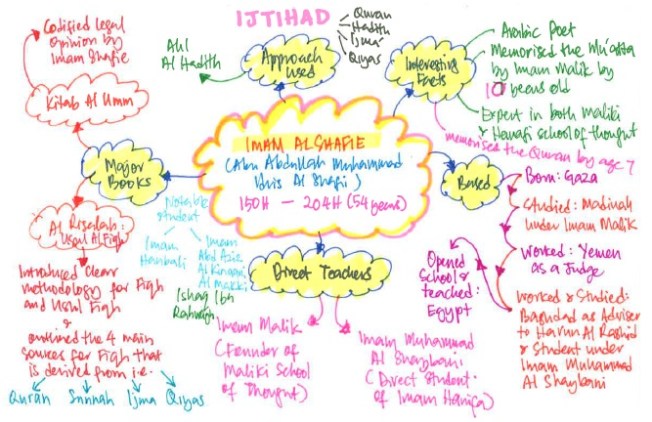 IJTIHAD
Quran
Hadith
Ijma'
Qiyas
Approach
Used
Ahl
Al Hadith
Interesting
Facts
Arabic Poet
Memorised the Mu'atta
by Imam Malik by
10 years old
Expert in both maliki
& Hanafi school of thought
memorised the Quran by age 7
Codified legal
opinion by
Imam Shafie
Kitab Al Umm
Major
Books
Al Risalah:
Usul Al Fiqh
Introduced clear
methodology for Fiqh
and Usul Fiqh
&
outlined the 4 main
sources for Fiqh that
is derived from i.e.
Quran Sunnah Ijma Qiyas
IMAM AL SHAFIE
(Abu Abdullah Muhammad
Idris Al Shafi)
150H — 204H (54 years)
Notable
student
Imam
Hanbali
Imam
Abd Aziz
Al Kinani
Al Makki
Ishaq Ibn
Rahwayh
Direct Teachers
Imam Malik
(Founder of
Maliki School
of Thought)
Imam Muhammad
Al Shaybani
(Direct student
of Imam Hanifa)
Based
Born: Gaza
Studied: Madinah
under Imam Malik
Worked: Yemen
as a Judge
Worked & Studied:
Baghdad as Adviser
to Harun Al Rashid
& Student under
Imam Muhammad
Al Shaybani
Opened
school &
teached:
Egypt